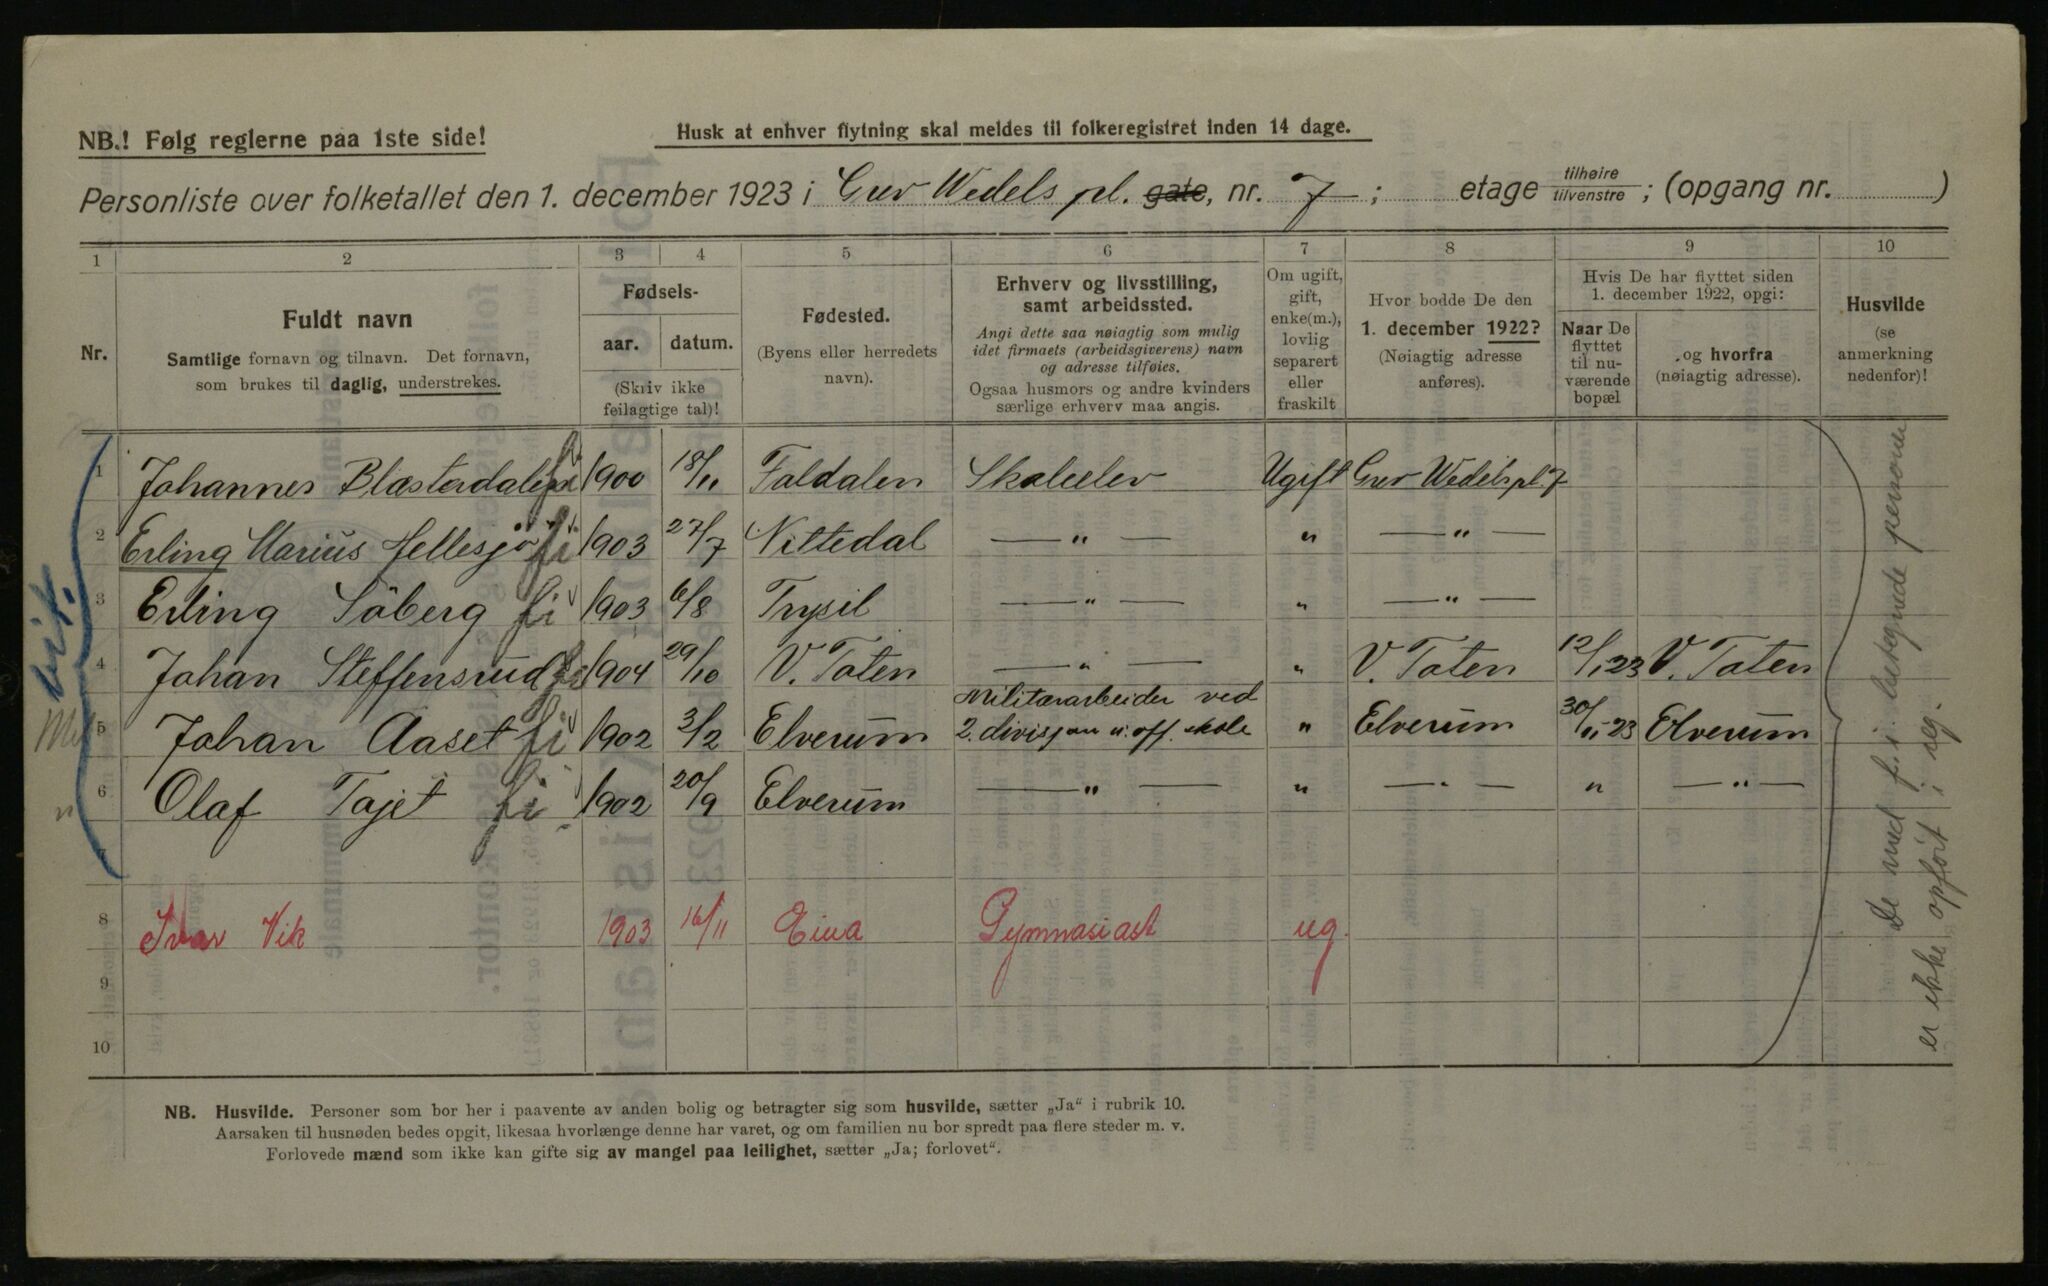 NB.! Følg reglerne paa 1ste side!
Husk at enhver flytning skal meldes til folkeregistret inden 14 dage.
Personliste over folketallet den 1. december 1923 i Grev Wedels pl. gate, nr. 7; etage tilhøire / tilvenstre; (opgang nr. )
1 2 3 4 5 6 7 8 9 10
Nr.
Fuldt navn
Samtlige fornavn og tilnavn. Det fornavn,
som brukes til daglig, understrekes.
Fødsels-
aar. datum.
(Skriv ikke
feilagtige tal)!
Fødested.
(Byens eller herredets
navn).
Erhverv og livsstilling,
samt arbeidssted.
Angi dette saa nøiagtig som mulig
idet firmaets (arbeidsgiverens) navn
og adresse tilføies.
Ogsaa husmors og andre kvinders
særlige erhverv maa angis.
Om ugift,
gift,
enke(m.),
lovlig
separert
eller
fraskilt
Hvor bodde De den
1. december 1922?
(Nøiagtig adresse
anføres).
Hvis De har flyttet siden
1. december 1922, opgi:
Naar De
flyttet
til nu-
værende
bopæl
og hvorfra
(nøiagtig adresse).
Husvilde
(se
anmerkning
nedenfor)!
1 Johannes Blæsterdalen fi 1900 18/11 Faldalen Skoleelev Ugift Grev Wedels pl. 7
2 Erling Marius Hellesjö fi 1903 27/7 Nittedal — " — " — " —
3 Erling Söberg fi 1903 6/8 Trysil — " — " — " —
4 Johan Steffensrud fi 1904 29/10 V. Toten — " — " V. Toten 12/1 23 V. Toten
5 Johan Aaset fi 1902 3/2 Elverum Militærarbeider ved
2. divisjon u. off. skole " Elverum 30/11-23 Elverum
6 Olaf Tajet fi 1902 20/9 Elverum — " — " — " — " — " —
7
8 Ivar Vik 1903 16/11 Eina Gymnasiast ug.
9
10
De med f. i. betegnede personer
er ikke opført i reg.
NB. Husvilde. Personer som bor her i paavente av anden bolig og betragter sig som husvilde, sætter „Ja“ i rubrik 10.
Aarsaken til husnøden bedes opgit, likesaa hvorlænge denne har varet, og om familien nu bor spredt paa flere steder m. v.
Forlovede mænd som ikke kan gifte sig av mangel paa leilighet, sætter „Ja; forlovet“.